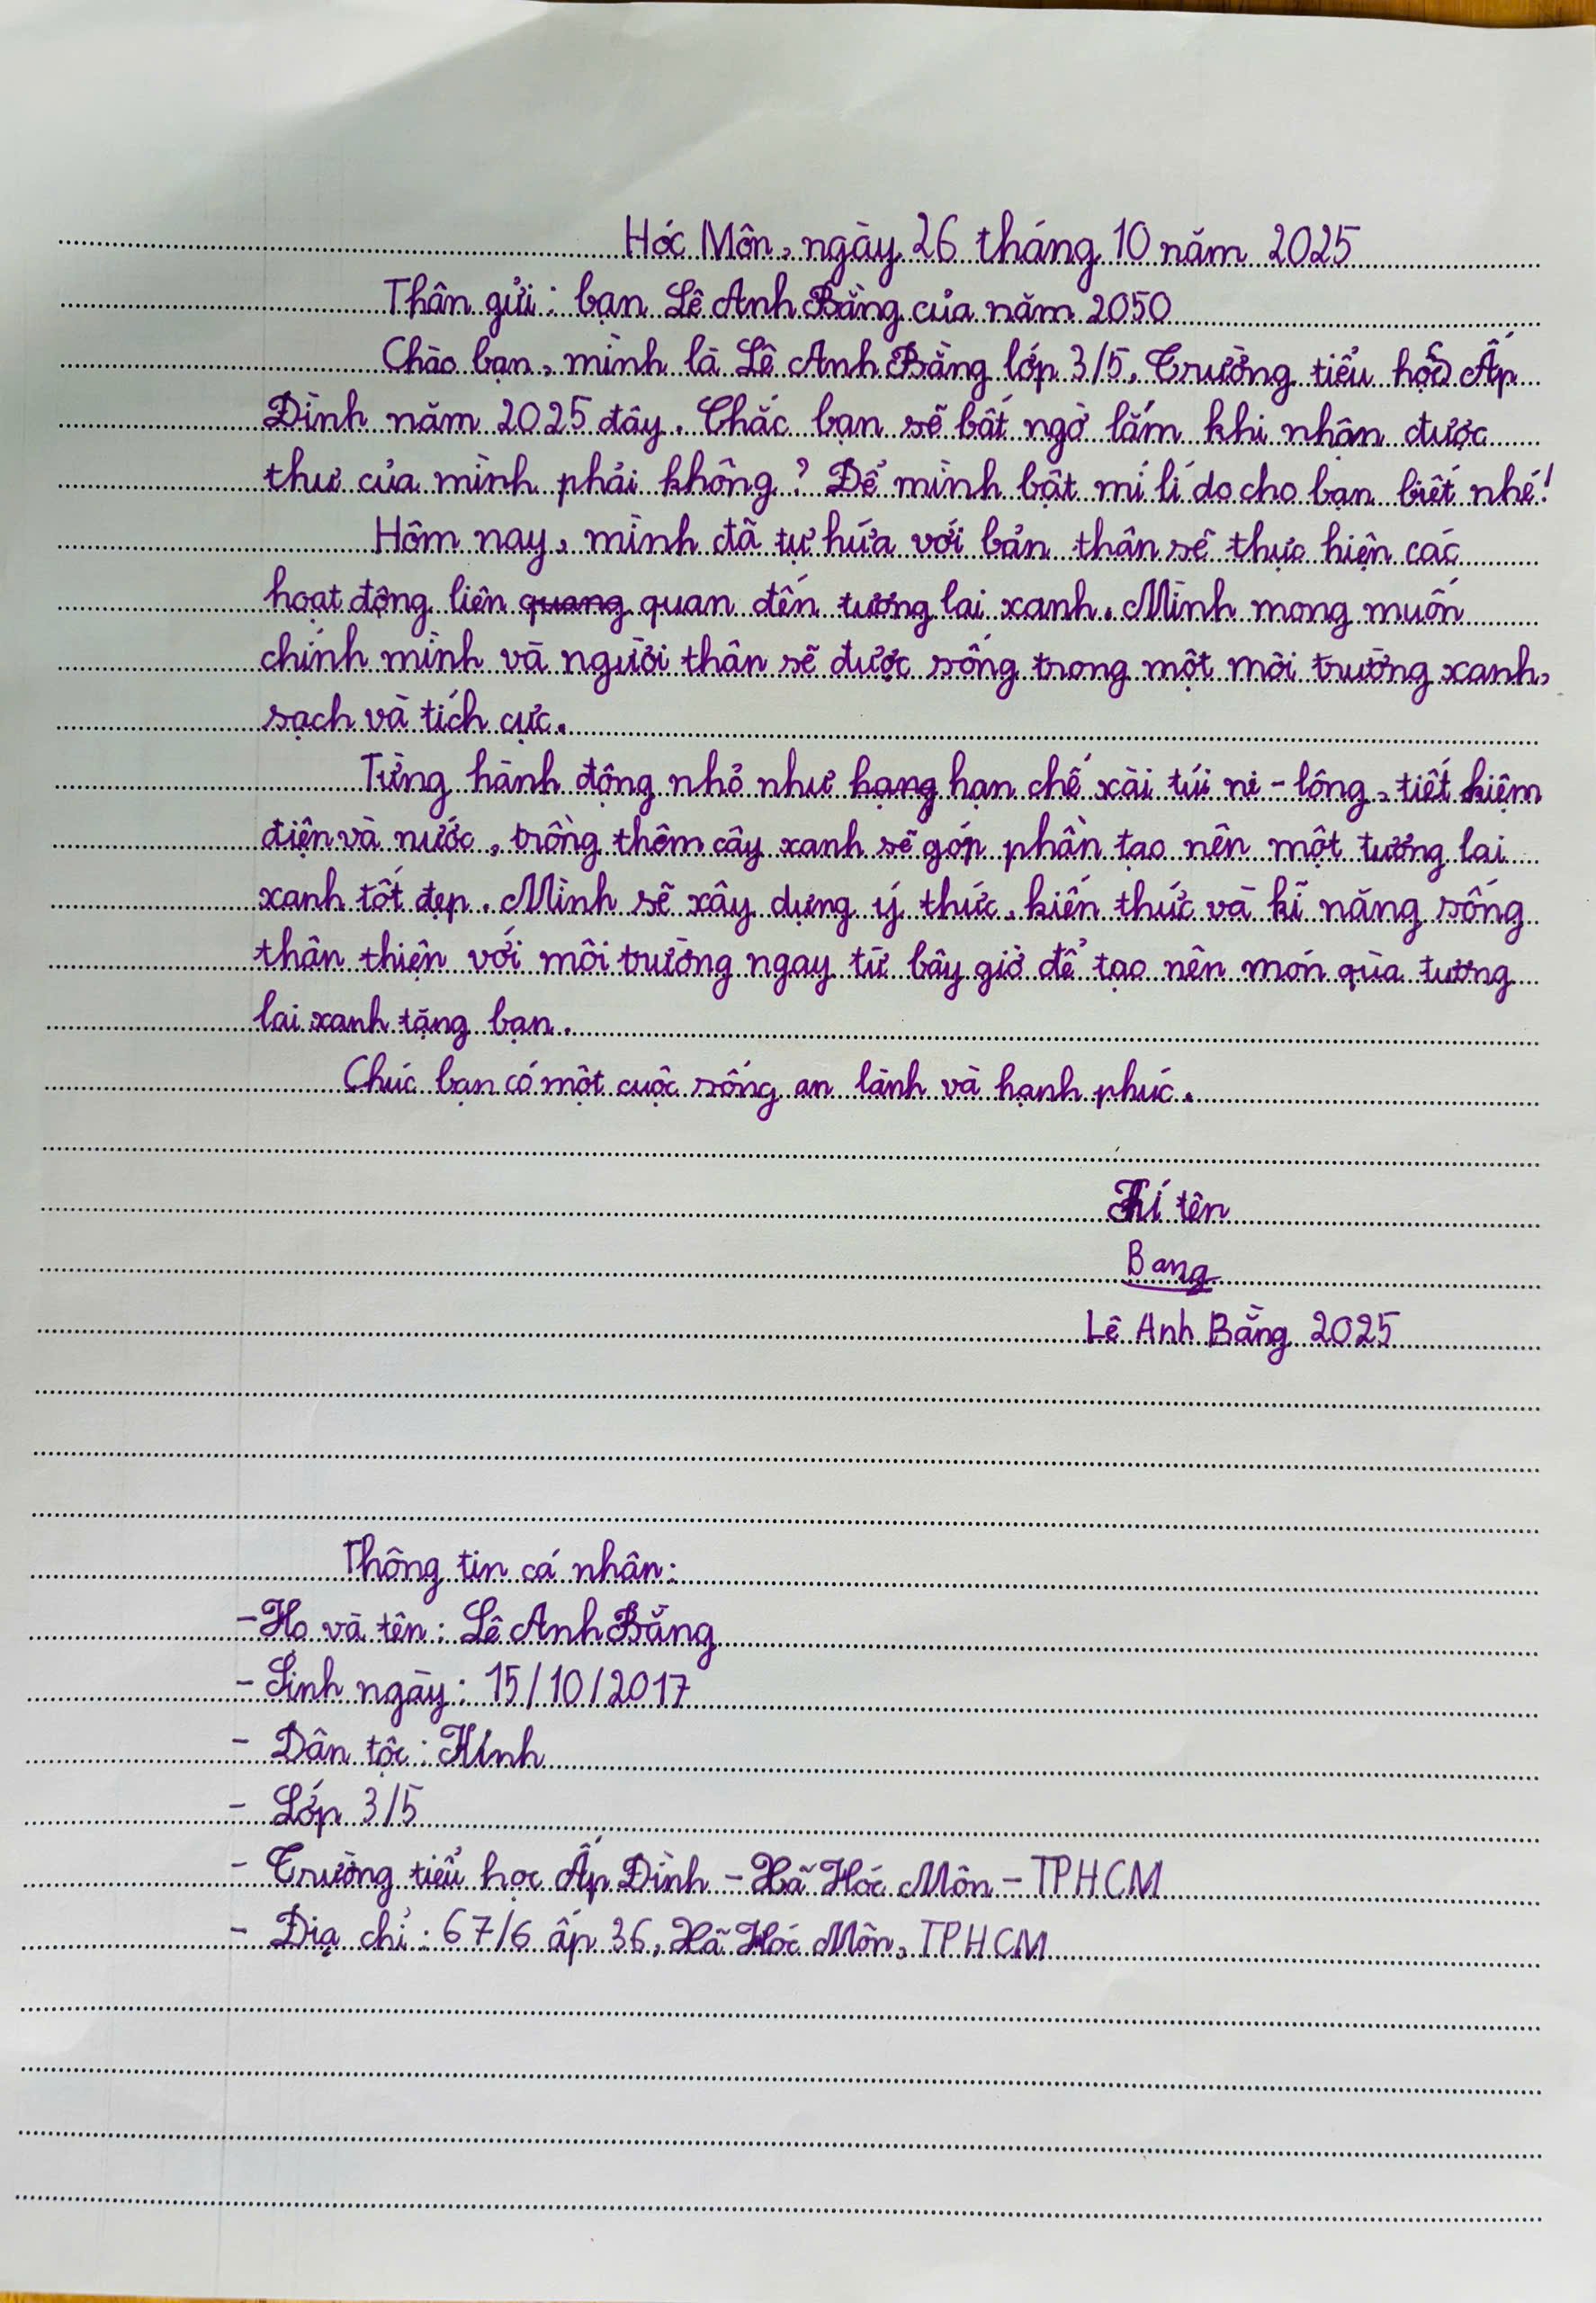 Hóc Môn, ngày 26 tháng 10 năm 2025
Thân gửi: bạn Lê Anh Bằng của năm 2050
Chào bạn, mình là Lê Anh Bằng lớp 3/5, Trường tiểu học Ấp
Đình năm 2025 đây. Chắc bạn sẽ bất ngờ lắm khi nhận được
thư của mình phải không? Để mình bật mí lí do cho bạn biết nhé!
Hôm nay, mình đã tự hứa với bản thân sẽ thực hiện các
hoạt động liên quang quan đến tương lai xanh. Mình mong muốn
chính mình và người thân sẽ được sống trong một môi trường xanh,
sạch và tích cực.
Từng hành động nhỏ như hạng hạn chế xài túi ni-lông, tiết kiệm
điện và nước, trồng thêm cây xanh sẽ góp phần tạo nên một tương lai
xanh tốt đẹp. Mình sẽ xây dựng ý thức, kiến thức và kĩ năng sống
thân thiện với môi trường ngay từ bây giờ để tạo nên món qùa tương
lai xanh tặng bạn.
Chúc bạn có một cuộc sống an lành và hạnh phúc.
Kí tên
Bang
Lê Anh Bằng 2025
Thông tin cá nhân:
- Họ và tên: Lê Anh Bằng
- Sinh ngày: 15/10/2017
- Dân tộc: Kinh
- Lớp 3/5
- Trường tiểu học Ấp Đình - Xã Hóc Môn - TPHCM
- Địa chỉ: 67/6 ấp 36, Xã Hóc Môn, TPHCM